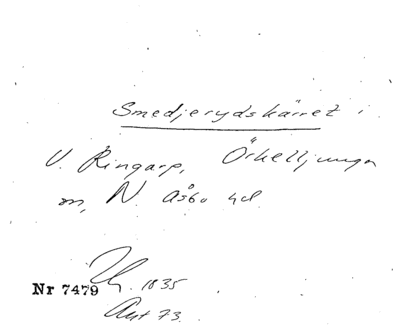 Smedjerydskärret i
V. Ringarp, Örkelljunga
sn, N Åsbo hd
1835
Nr 7479
Ant 73.